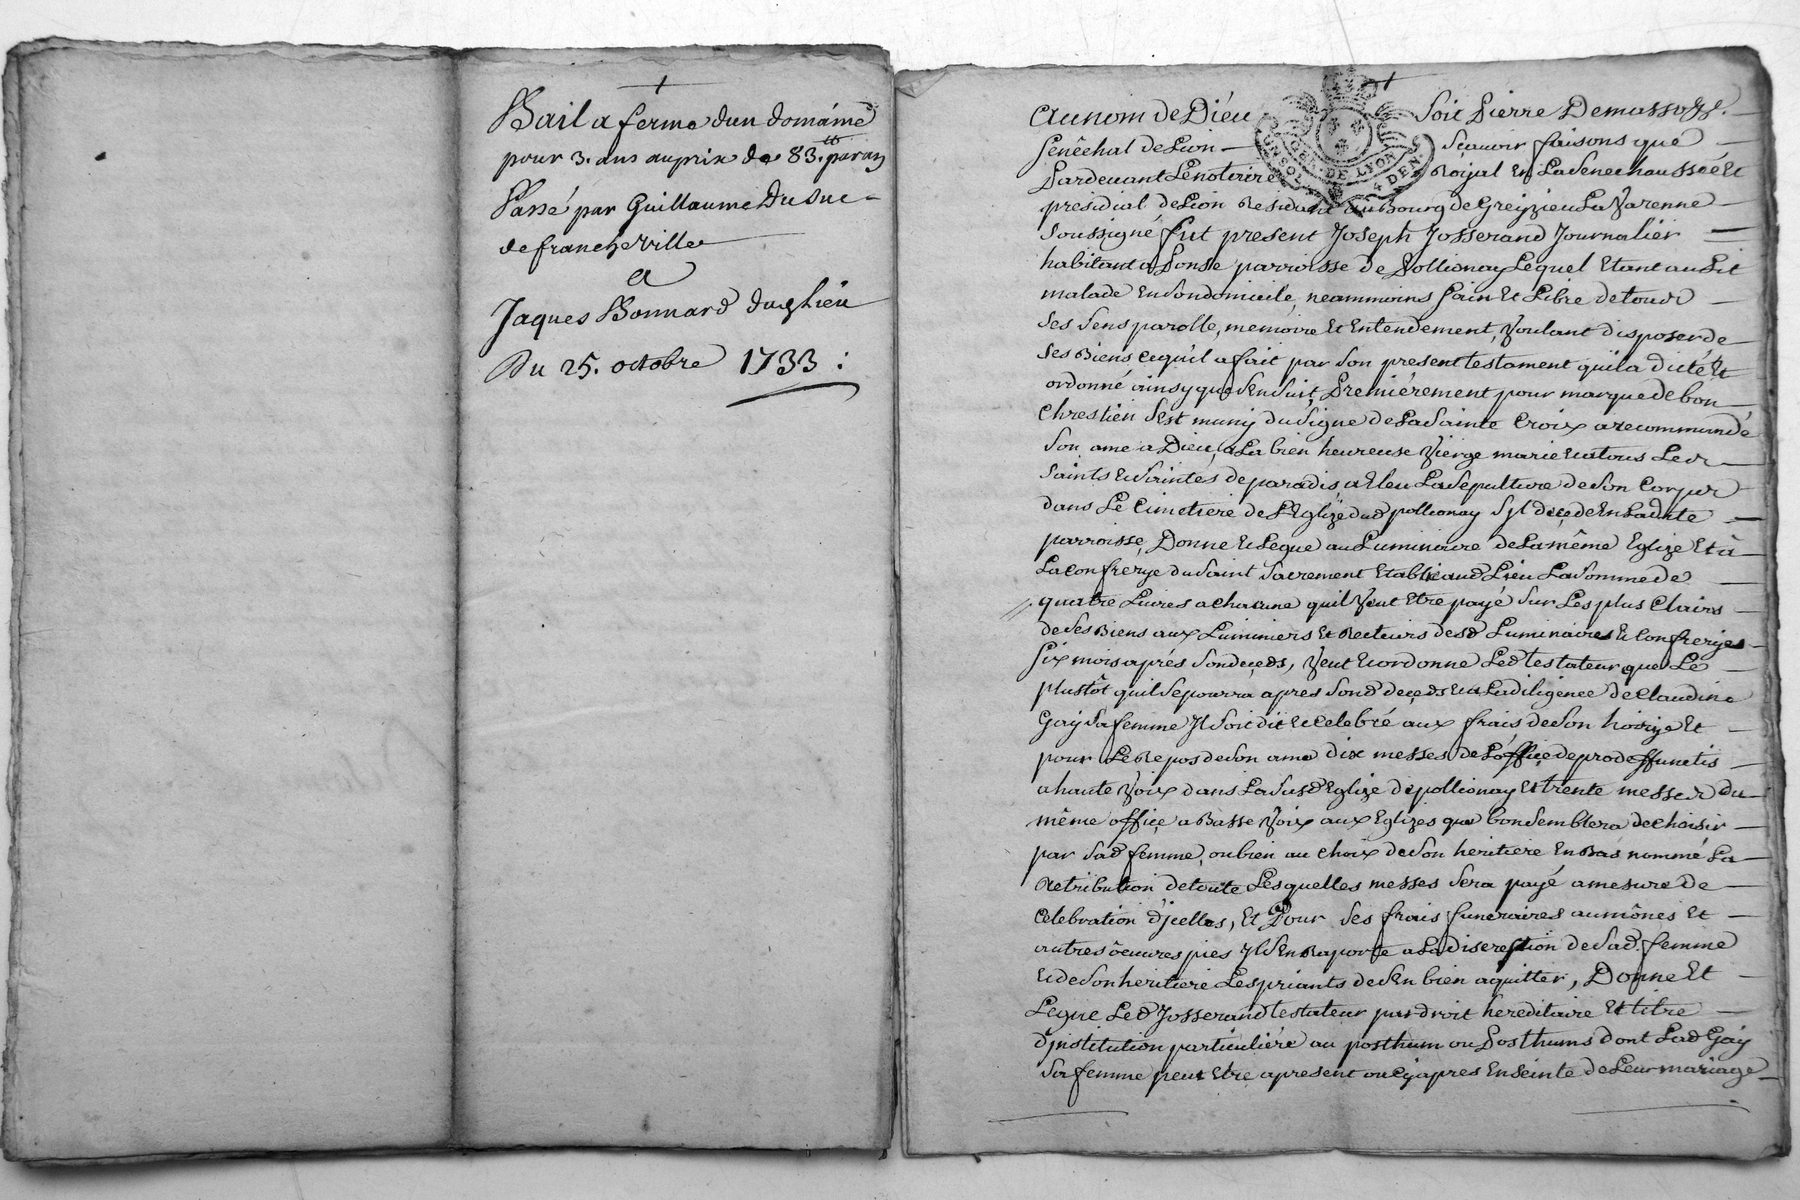 Bail a ferme dun domaine
pour 3. ans au prix de 83.tt par an
Passé par Guillaume Dusuc
de francheville
a
Jaques Bonnard
Du 25. octobre 1733 :
Au nom de Diéu Soit Pierre Demassozs.
Sénéchal de Lion Sçauoir faisons que
Pardeuant Le notaire Roiyal En La Senechaussée Et
presidial de Lion Residant au Bourg de Greyzieu La Varenne
Soussigné fut present Joseph Josserand Journalier
habitant a Ponse parroisse de Pollionay Lequel Etant au Lit
malade En Son domicile, neammoins Sain Et Libre de tous
Ses Sens parolle, memoire Et Entendement, Voulant disposer de
Ses Biens ce qu'il a fait par Son present testament quil a dicté Et
ordonné ainsy que S'En Suit, Premiérement pour marque de bon
Chrestien S'Est muny du Signe de La Sainte Croix a recommandé
Son ame a Dieu, a La bien heureuse Vierge marie Et a tous Les
Saints Et Saintes de paradis, a Eleu La Sepulture de Son Corps
dans Le Cimetiere de L'Eglize dud pollionay S'il decede En Ladite
parroisse, Donne Et Legue au Luminaire de La même Eglize Et â
La confrerye du Saint Sacrement Etablie aud Lieu La Somme de
quatre Liures a chacune quil Veut Etre payé Sur Les plus Clairs
de Ses Biens aux Luminiers Et Recteurs desd Luminaires Et Confreryes
Six mois aprés Son deceds, Veut Et ordonne Led testateur que Le
plustôt quil Se pourra apres Sond deceds Et a La diligence de Claudine
Gay Sa femme Jl Soit dit Et Celebré aux frais de Son hoirye Et
pour Le Repos de Son ame dix messes de L'office de pro deffunctis
a haute Voix dans La Susd Eglize de pollionay Et trente messes du
même office a Basse Voix aux Eglizes que bon Semblera de choisir
par Sad femme, ou bien au choix de Son heritiere En Bas nommé La
Retribution de toute Lesquelles messes Sera payé a mesure de
Celebration d'jcelles, Et Pour Ses frais funeraires aumônes Et
autres oeuures pies Jl S'En Raporte a La discretion de Sad. femme
Et de Son heritiere Les priants de S'En bien aquitter, Donne Et
Legue Led Josserand testateur par droit hereditaire Et titre
d'jnstitution particuliére au posthum ou Posthums dont Lad Gay
Sa femme peut Etre a present ou cy apres Enseinte de Leur mariage